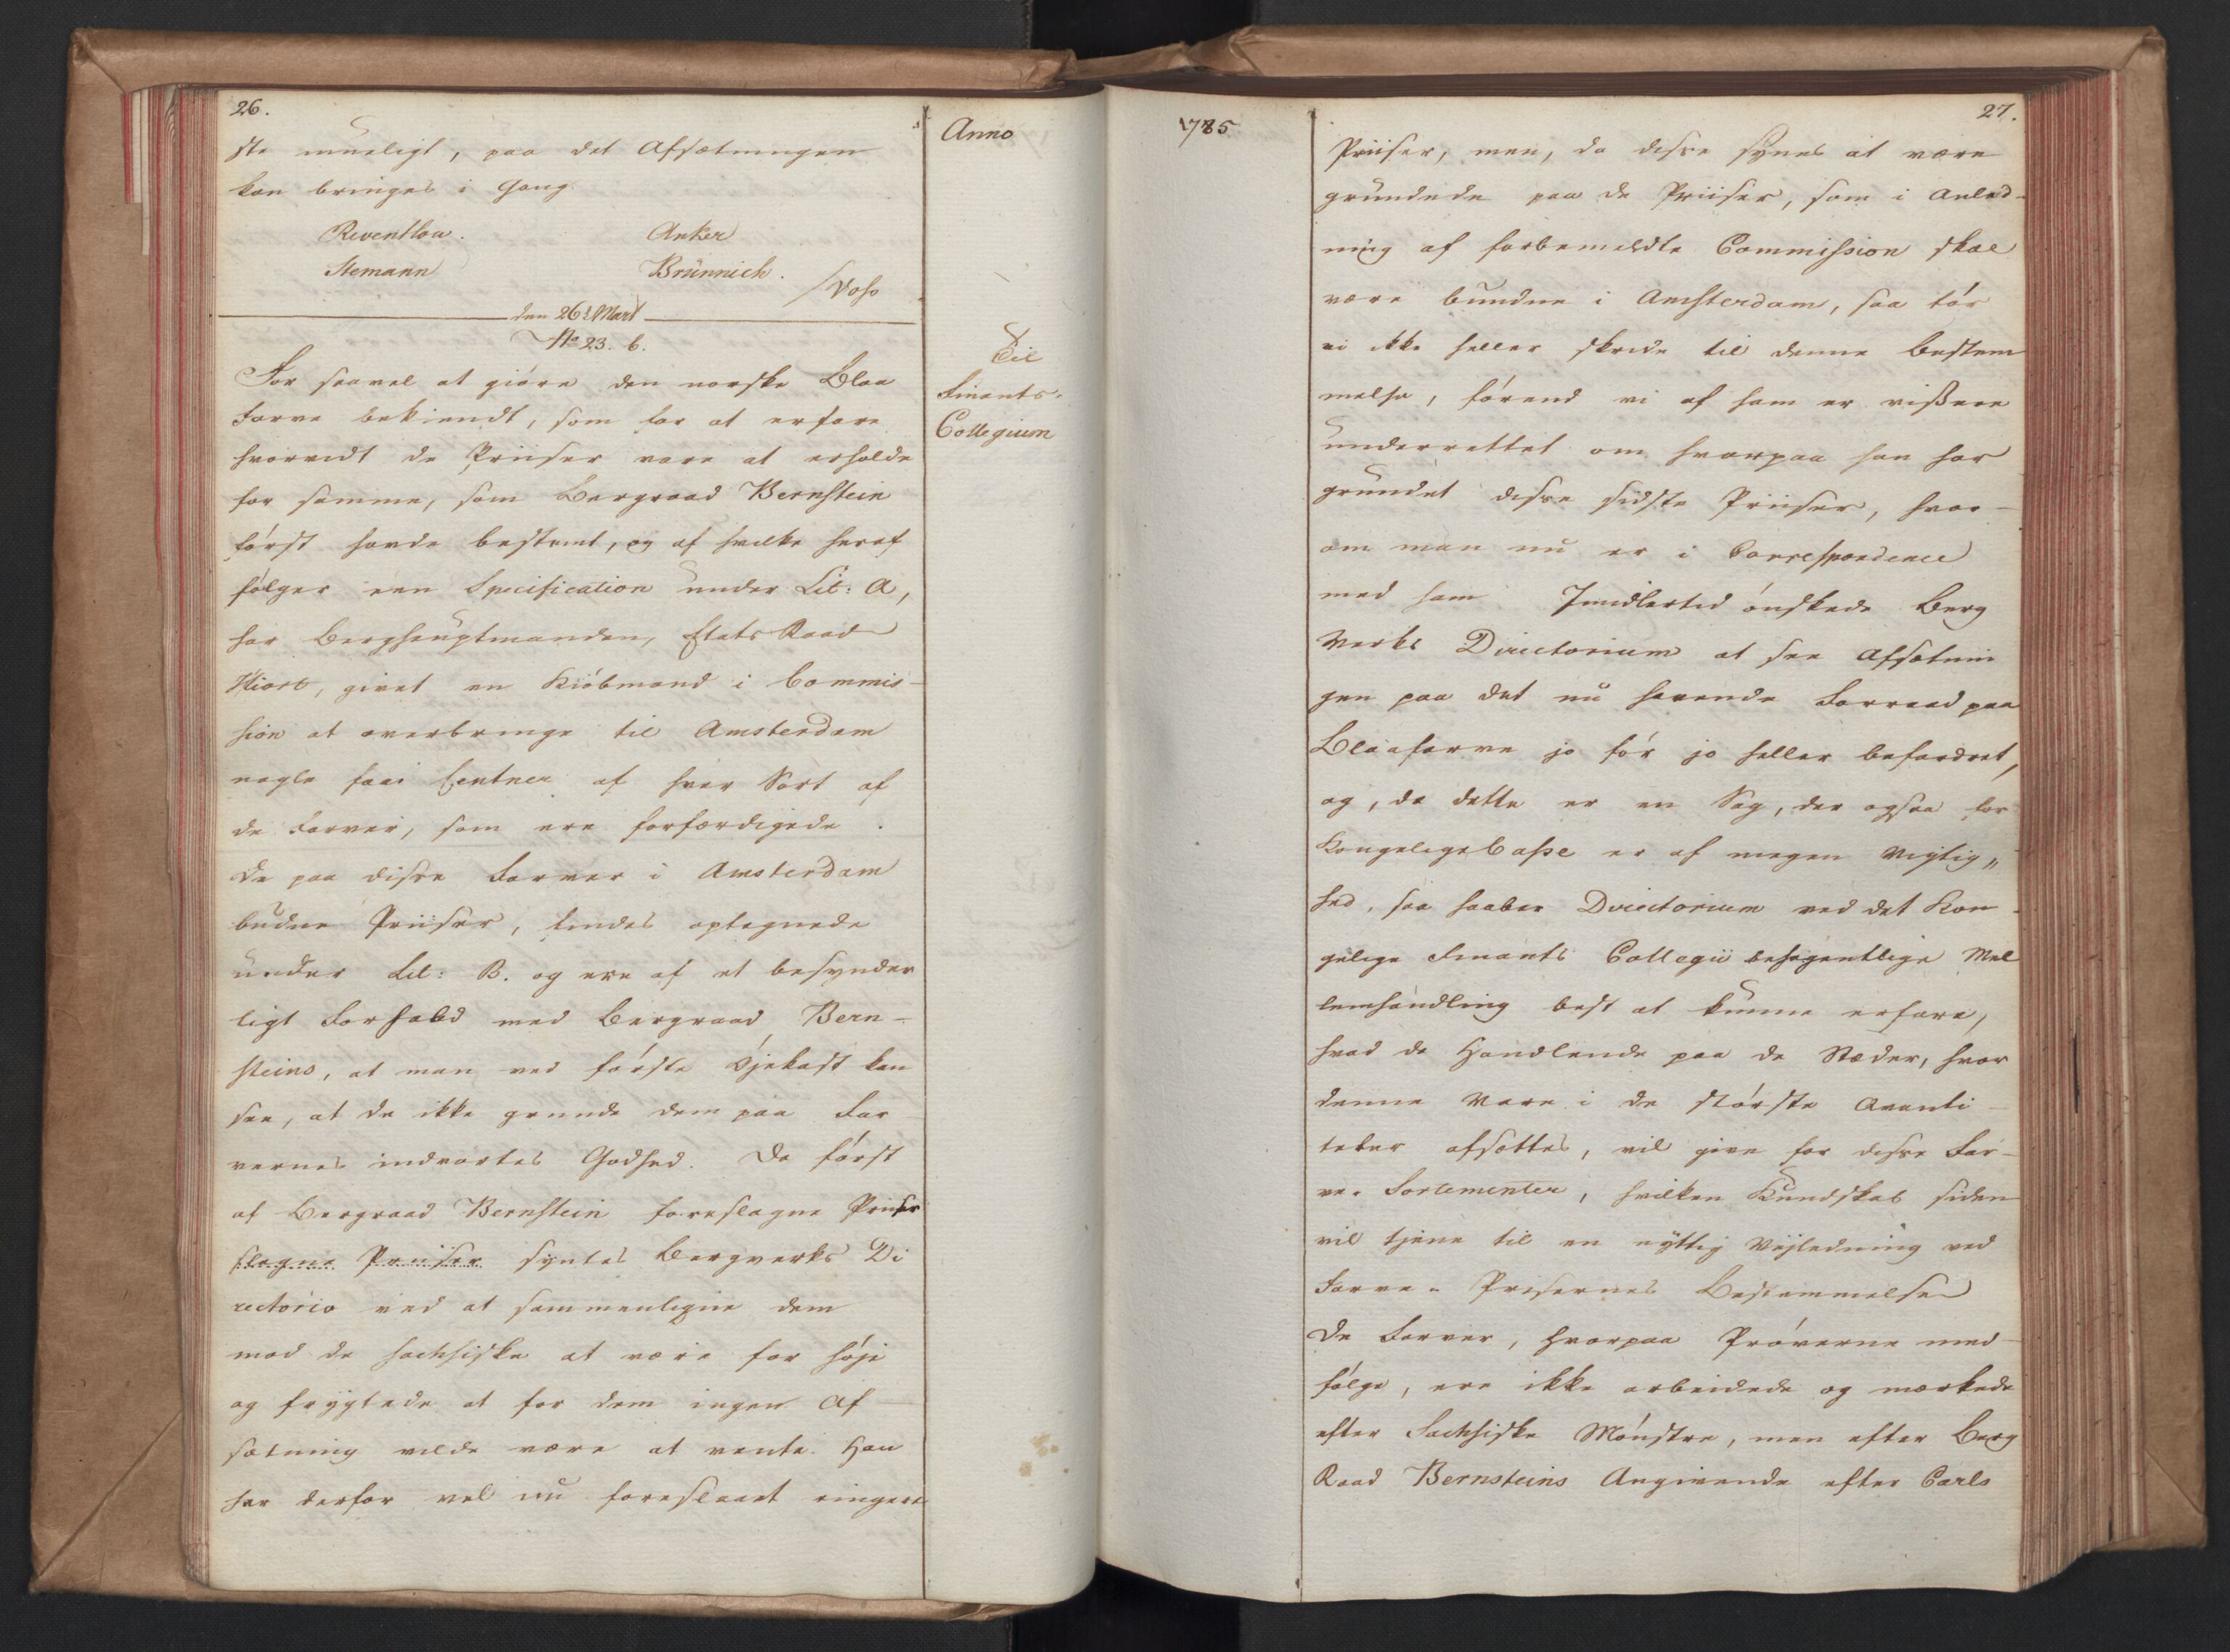 26.
Anno
ste mueligt, paa det Afsætningen
kan bringes i Gang.
Reventlow. Anker
Stemann Brünnich. /Voss
den 26 Mart
No 23. b.
Til
Finants-
Collegium
For saavel at giöre den norske Blaa
Farve bekiendt, som for at erfare
hvorvidt de Priiser vare at erholde
for samme, som Bergraad Bernstein
först havde bestemt, og af hvilke heraf
fölger een Specification under Lit: A,
har Berghauptmanden, Etats Raad
Hiort, givet en Kiöbmand i Commis-
sion at overbringe til Amsterdam
nogle faae Centner af hver Sort af
de Farver, som ere forfærdigede.
De paa disse Farver i Amsterdam
budne Priiser, findes optegnede
under Lit: B. og ere af et besynder
ligt Forhold med Bergraad Bern-
steins, at man ved förste Öjekast kan
see, at de ikke grunde dem paa Far
vernes indvortes Godhed. De först
af Bergraad Bernstein foreslagne Priiser
slagne Priiser syntes Bergverks Di
rectorio ved at sammenligne dem
mod de sachsiske at være for höje
og frygtede at for dem ingen Af-
sætning vilde være at vente. Han
har derfor vel nu foreslaaet ringere
1785
27.
Priiser, men, da disse synes at være
grundede paa de Priiser, som i Anled-
ning af forbemeldte Commission skal
være bundne i Amsterdam, saa tör
vi ikke heller skride til denne Bestem
melse, förend vi af ham er vissere
underrettet om hvorpaa han har
grundet disse sidste Priiser, hvor-
om man nu er i Correspondence
med ham Imidlertid önskede Berg
Verks Directorium at see Afsætnin
gen paa det nu havende Forraad paa
Blaafarve jo för jo heller befordret,
og, da dette er en Sag, der ogsaa for
Kongelige Casse er af megen Vigtig„
hed, saa haaber Directorium ved det Kon-
gelige Finants Collegii behagentlige Mel
lemhandling best at kunne erfare,
hvad de Handlende paa de Stæder, hvor
denne Vare i de störste Qvanti-
teter afsættes, vil give for disse Far-
ve-Sortementer, hvilken Kundskab siden
vil tjene til en nyttig Vejledning ved
Farve-Prisernes Bestemmelse
De Farver, hvorpaa Pröverne med-
fölge, ere ikke arbeidede og mærkede
efter Sachsiske Mönstre, men efter Berg
Raad Bernsteins Angivende efter Carls